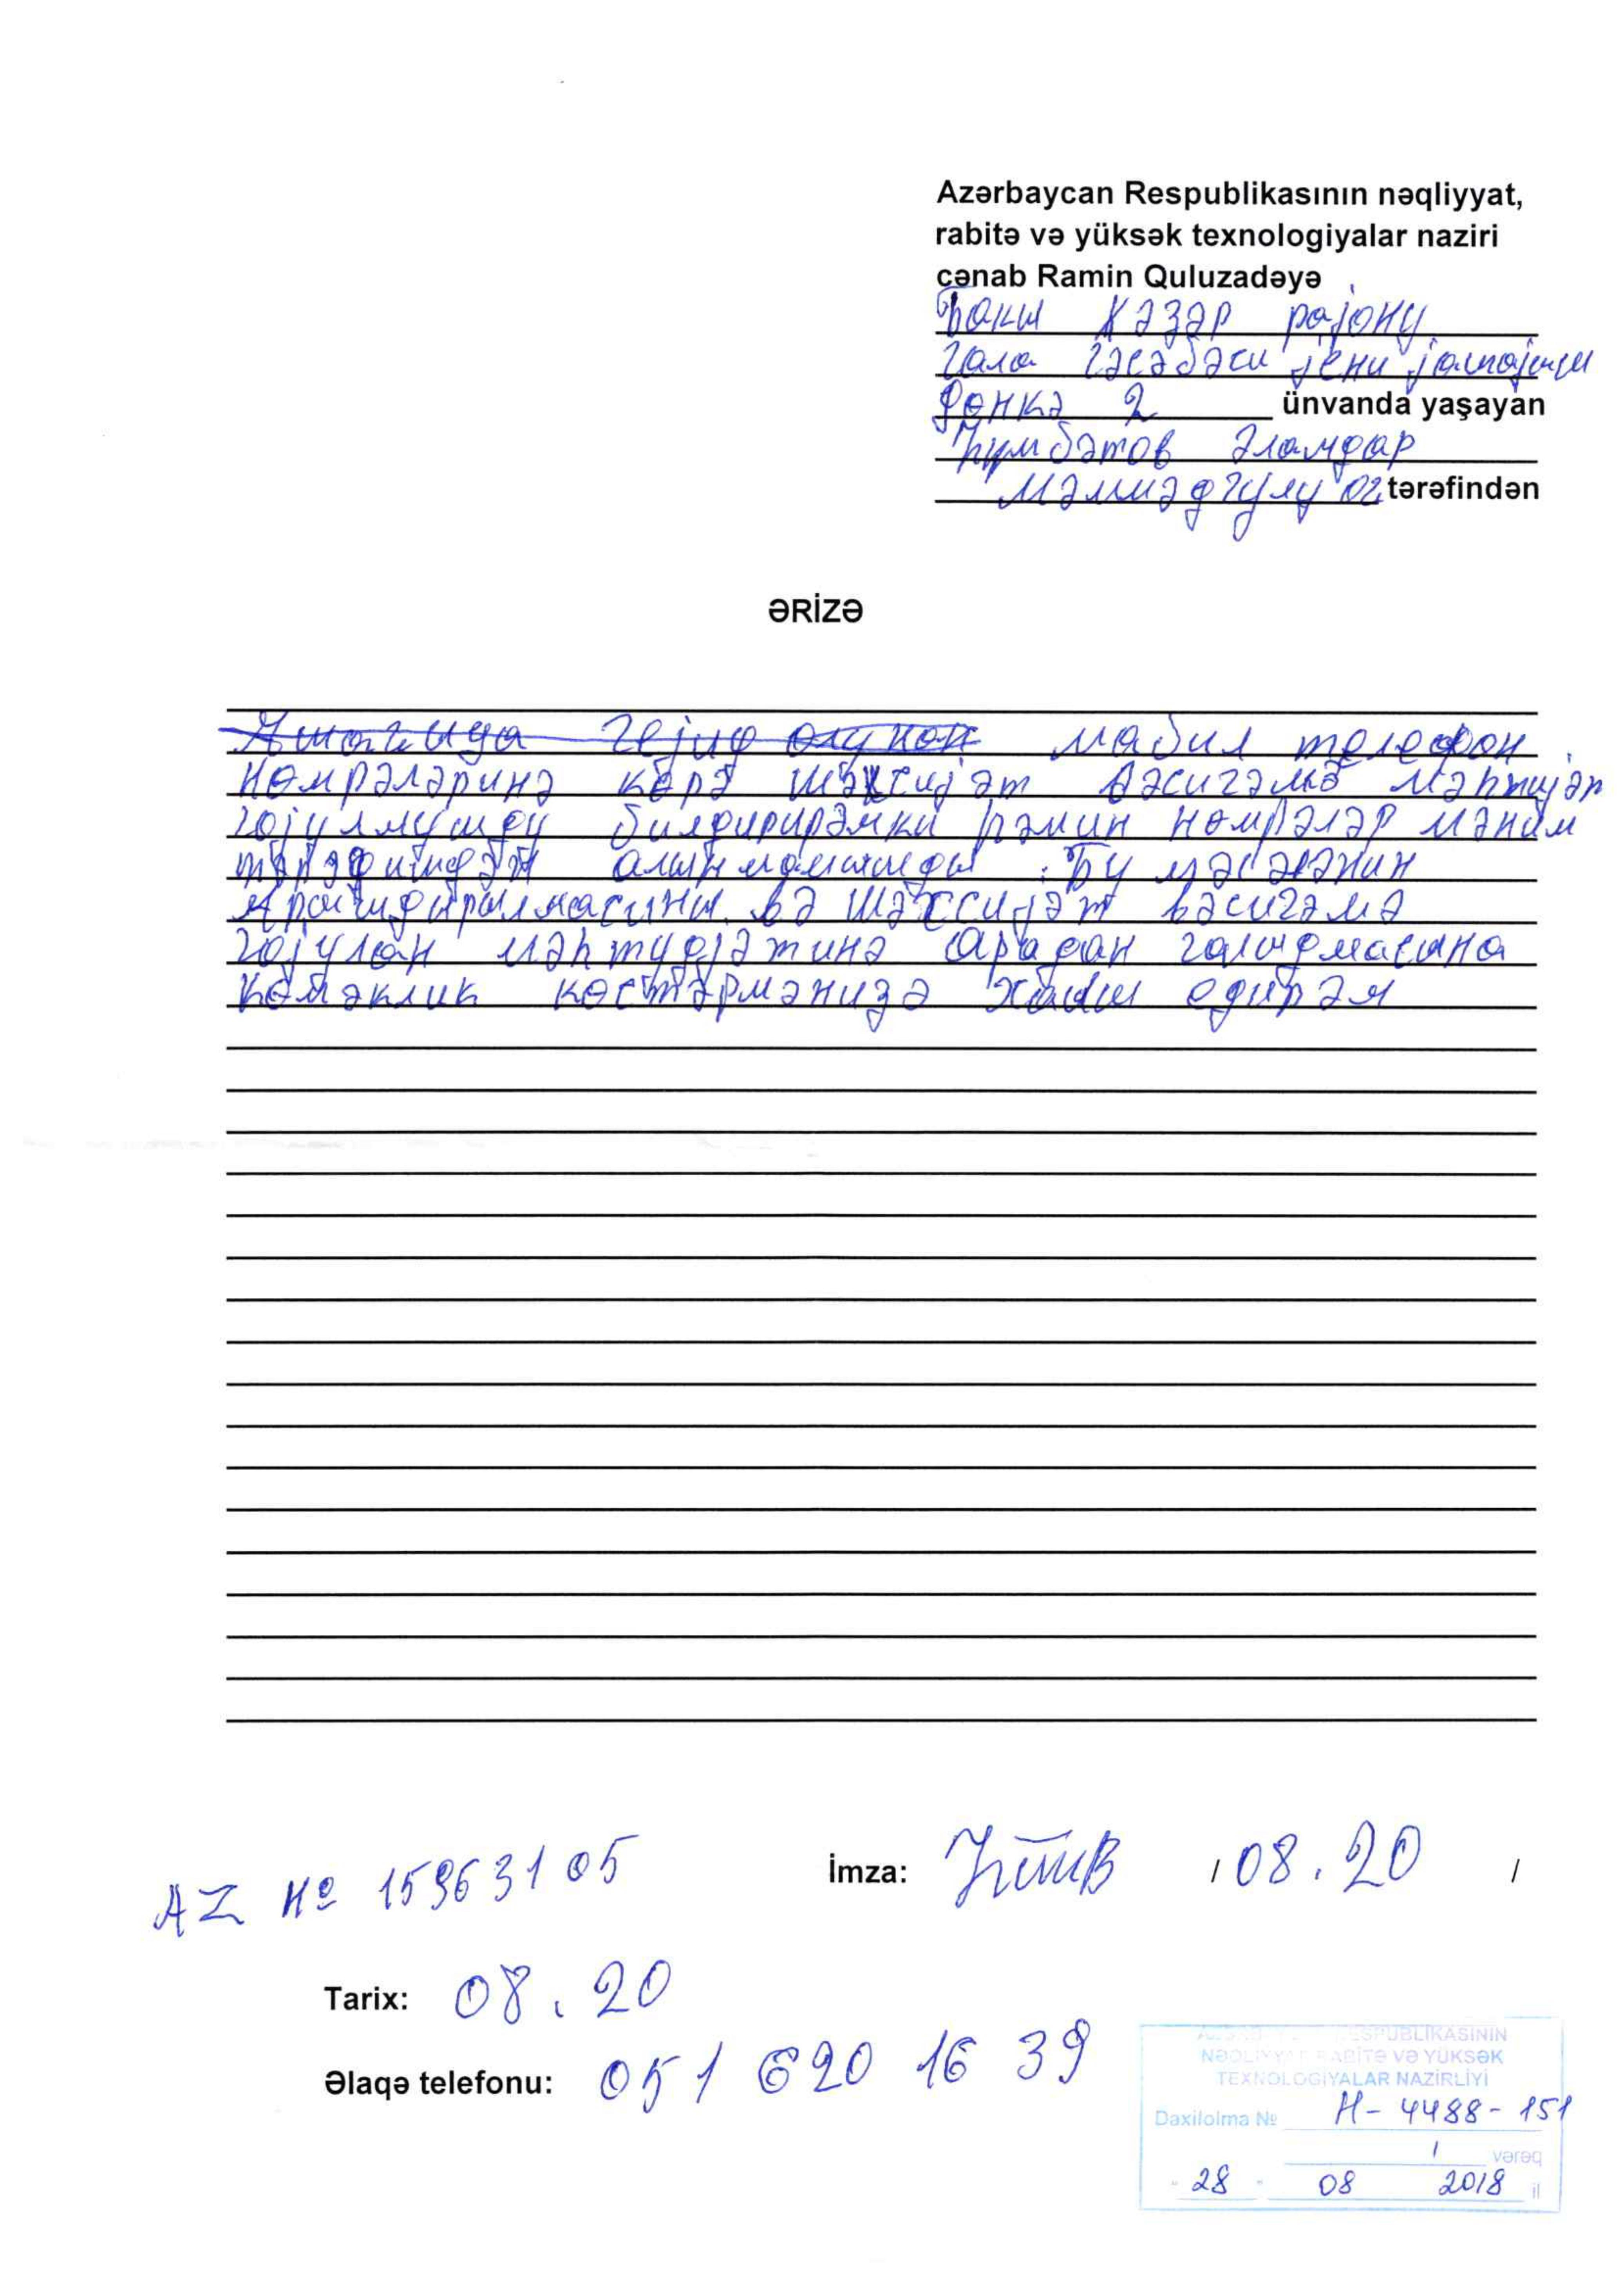 Azərbaycan Respublikasının nəqliyyat,
rabitə və yüksək texnologiyalar naziri
cənab Ramin Quluzadəyə
Бакы Хәзәр рајону
Гала гәсәбәси јени јашајыш
Фонка 2 ünvanda yaşayan
Һүмбәтов Әламдар
Мәммәдгулу ог. tərəfindən
ƏRİZƏ
Ашағыда гејид олунан мабил телефон
нөмрәләринә көрә шәхсијәт вәсигәмә мәһтијәт
гојулмушду билдирирәмки һәмин нөмрәләр мәним
тәрәфимдән алынмамышды. Бу мәсәләнин
Арашдырылмасыны вә шәхсијәт вәсигәмә
гојулан мәһтудјәтинә арадан галдырмасына
көмәклик көстәрмәнизә хаиш едирәм
AZ № 15963105
İmza: / 08.20 /
Tarix: 08.20
Əlaqə telefonu: 051 620 16 39
RESPUBLİKASININ
NƏQLİYYAT, RABİTƏ VƏ YÜKSƏK
TEXNOLOGİYALAR NAZİRLİYİ
Daxilolma № H-4488-151
1 vərəq
- 28 - 08 2018 il